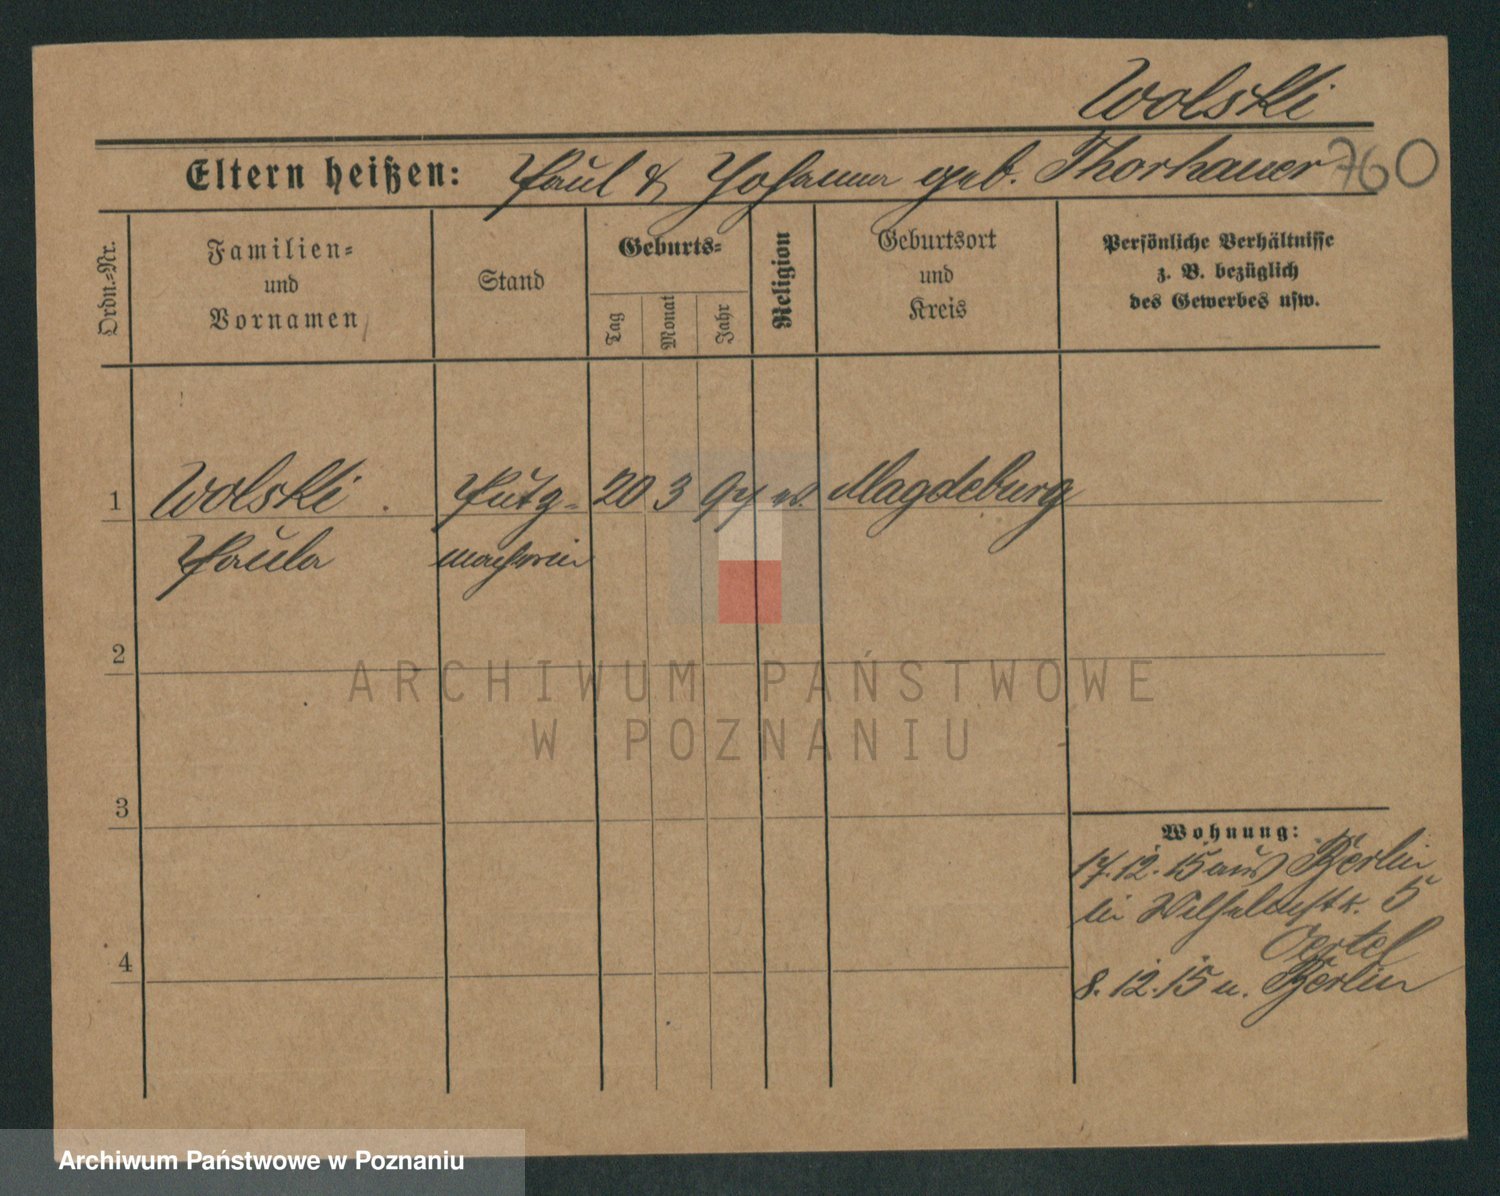 Wolski
Eltern heißen: Paul & Johanna geb. Thorhauer 760
Ordn.-Nr.
Familien-
und
Vornamen
Stand
Geburts-
Tag
Monat
Jahr
Religion
Geburtsort
und
Kreis
Persönliche Verhältnisse
z. B. bezüglich
des Gewerbes usw.
1 Wolski Putz- 20 3 97 ev. Magdeburg
Paula macherin
2
ARCHIWUM PAŃSTWOWE
W POZNANIU
3
Wohnung:
17.12.15 aus Berlin
in Wilhelmstr. 5
Oertel
4
8.12.15 n. Berlin
Archiwum Państwowe w Poznaniu